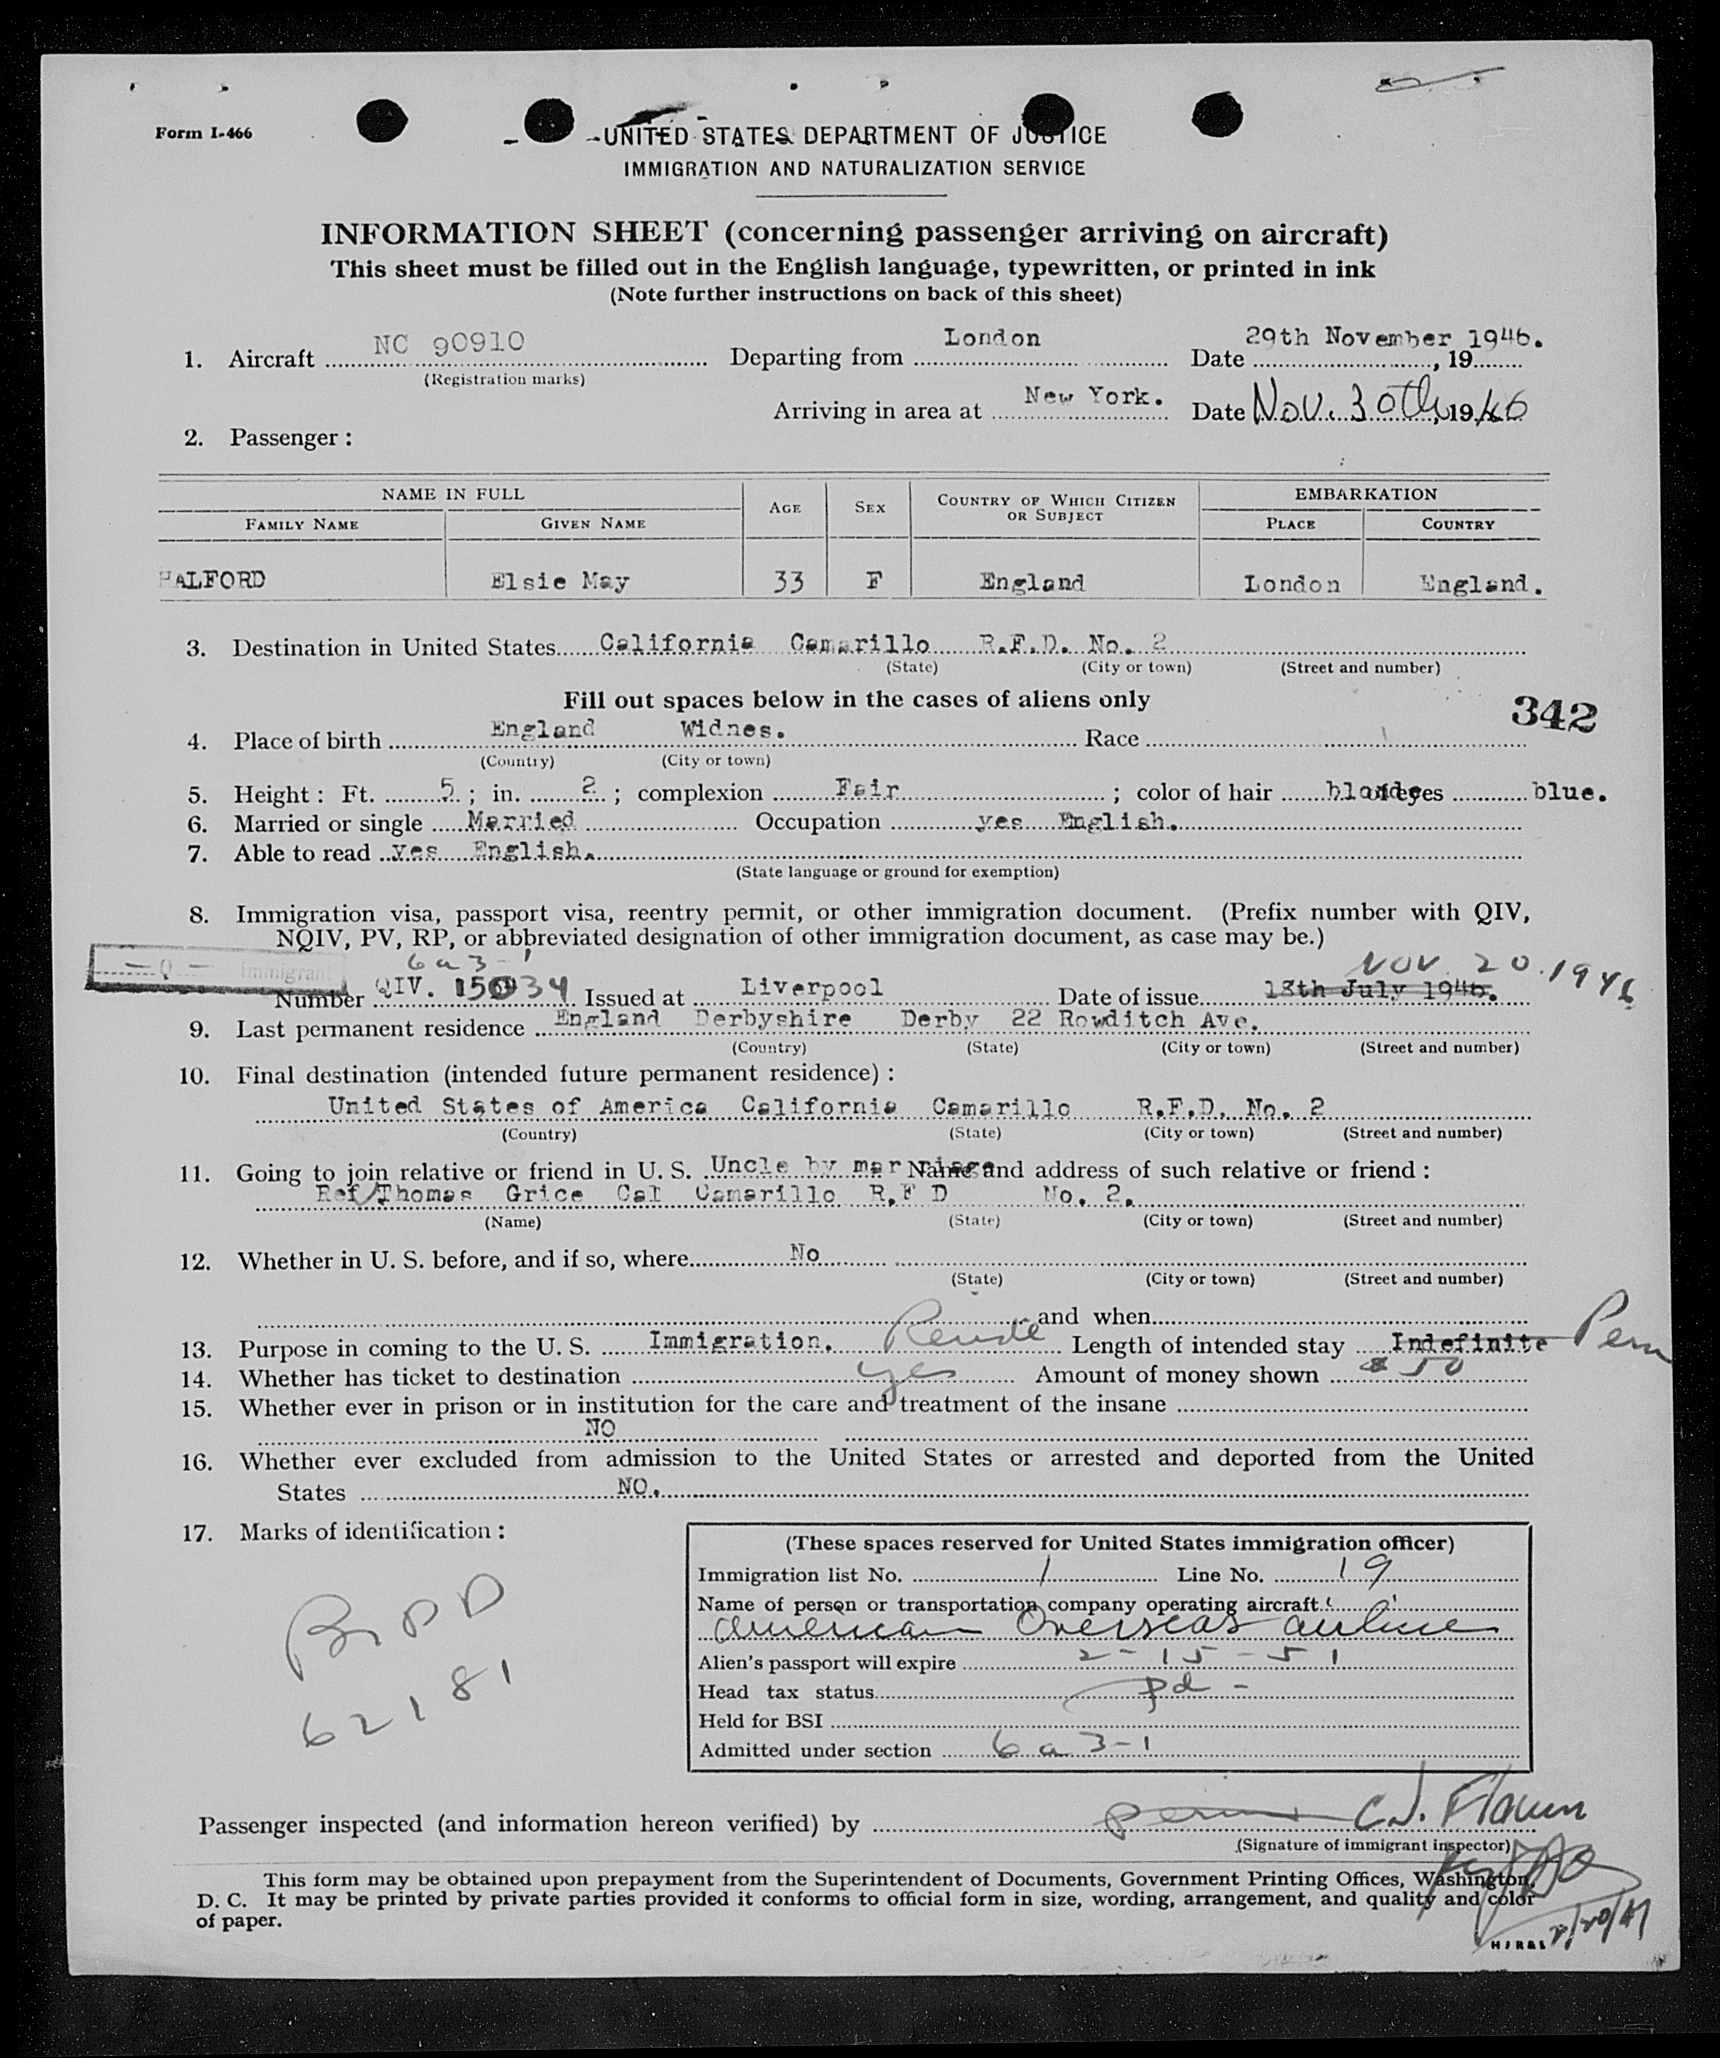 Form I-466
UNITED STATES DEPARTMENT OF JUSTICE
IMMIGRATION AND NATURALIZATION SERVICE
INFORMATION SHEET (concerning passenger arriving on aircraft)
This sheet must be filled out in the English language, typewritten, or printed in ink
(Note further instructions on back of this sheet)
1. Aircraft NC 90910 Departing from London Date 29th November 1946. , 19
(Registration marks)
Arriving in area at New York. Date Nov. 30th, 1946
2. Passenger :
NAME IN FULL AGE SEX COUNTRY OF WHICH CITIZEN OR SUBJECT EMBARKATION
FAMILY NAME GIVEN NAME PLACE COUNTRY
HALFORD Elsie May 33 F England London England.
3. Destination in United States California Camarillo R.F.D. No. 2
(State) (City or town) (Street and number)
Fill out spaces below in the cases of aliens only
342
4. Place of birth England Widnes. Race
(Country) (City or town)
5. Height : Ft. 5 ; in. 2 ; complexion Fair ; color of hair blonde of eyes blue.
6. Married or single Married Occupation yes English.
7. Able to read yes English.
(State language or ground for exemption)
8. Immigration visa, passport visa, reentry permit, or other immigration document. (Prefix number with QIV,
NQIV, PV, RP, or abbreviated designation of other immigration document, as case may be.)
— Q — Immigrant 6a3-1 Nov. 20. 1946
Number QIV. 15034 Issued at Liverpool Date of issue 18th July 1946.
9. Last permanent residence England Derbyshire Derby 22 Rowditch Ave.
(Country) (State) (City or town) (Street and number)
10. Final destination (intended future permanent residence) :
United States of America California Camarillo R.F.D. No. 2
(Country) (State) (City or town) (Street and number)
11. Going to join relative or friend in U. S. Uncle by marriage Name and address of such relative or friend :
Ref Thomas Grice Cal Camarillo R.F D No. 2.
(Name) (State) (City or town) (Street and number)
12. Whether in U. S. before, and if so, where No
(State) (City or town) (Street and number)
and when
13. Purpose in coming to the U. S. Immigration. Reside Length of intended stay Indefinite Perm
14. Whether has ticket to destination yes Amount of money shown $ 50
15. Whether ever in prison or in institution for the care and treatment of the insane
NO
16. Whether ever excluded from admission to the United States or arrested and deported from the United
States NO.
17. Marks of identification :
62181
(These spaces reserved for United States immigration officer)
Immigration list No. 1 Line No. 19
Name of person or transportation company operating aircraft
American Overseas Airline
Alien's passport will expire 2-15-51
Head tax status pd -
Held for BSI
Admitted under section 6a3-1
Passenger inspected (and information hereon verified) by
(Signature of immigrant inspector)
This form may be obtained upon prepayment from the Superintendent of Documents, Government Printing Offices, Washington,
D. C. It may be printed by private parties provided it conforms to official form in size, wording, arrangement, and quality and color
of paper.